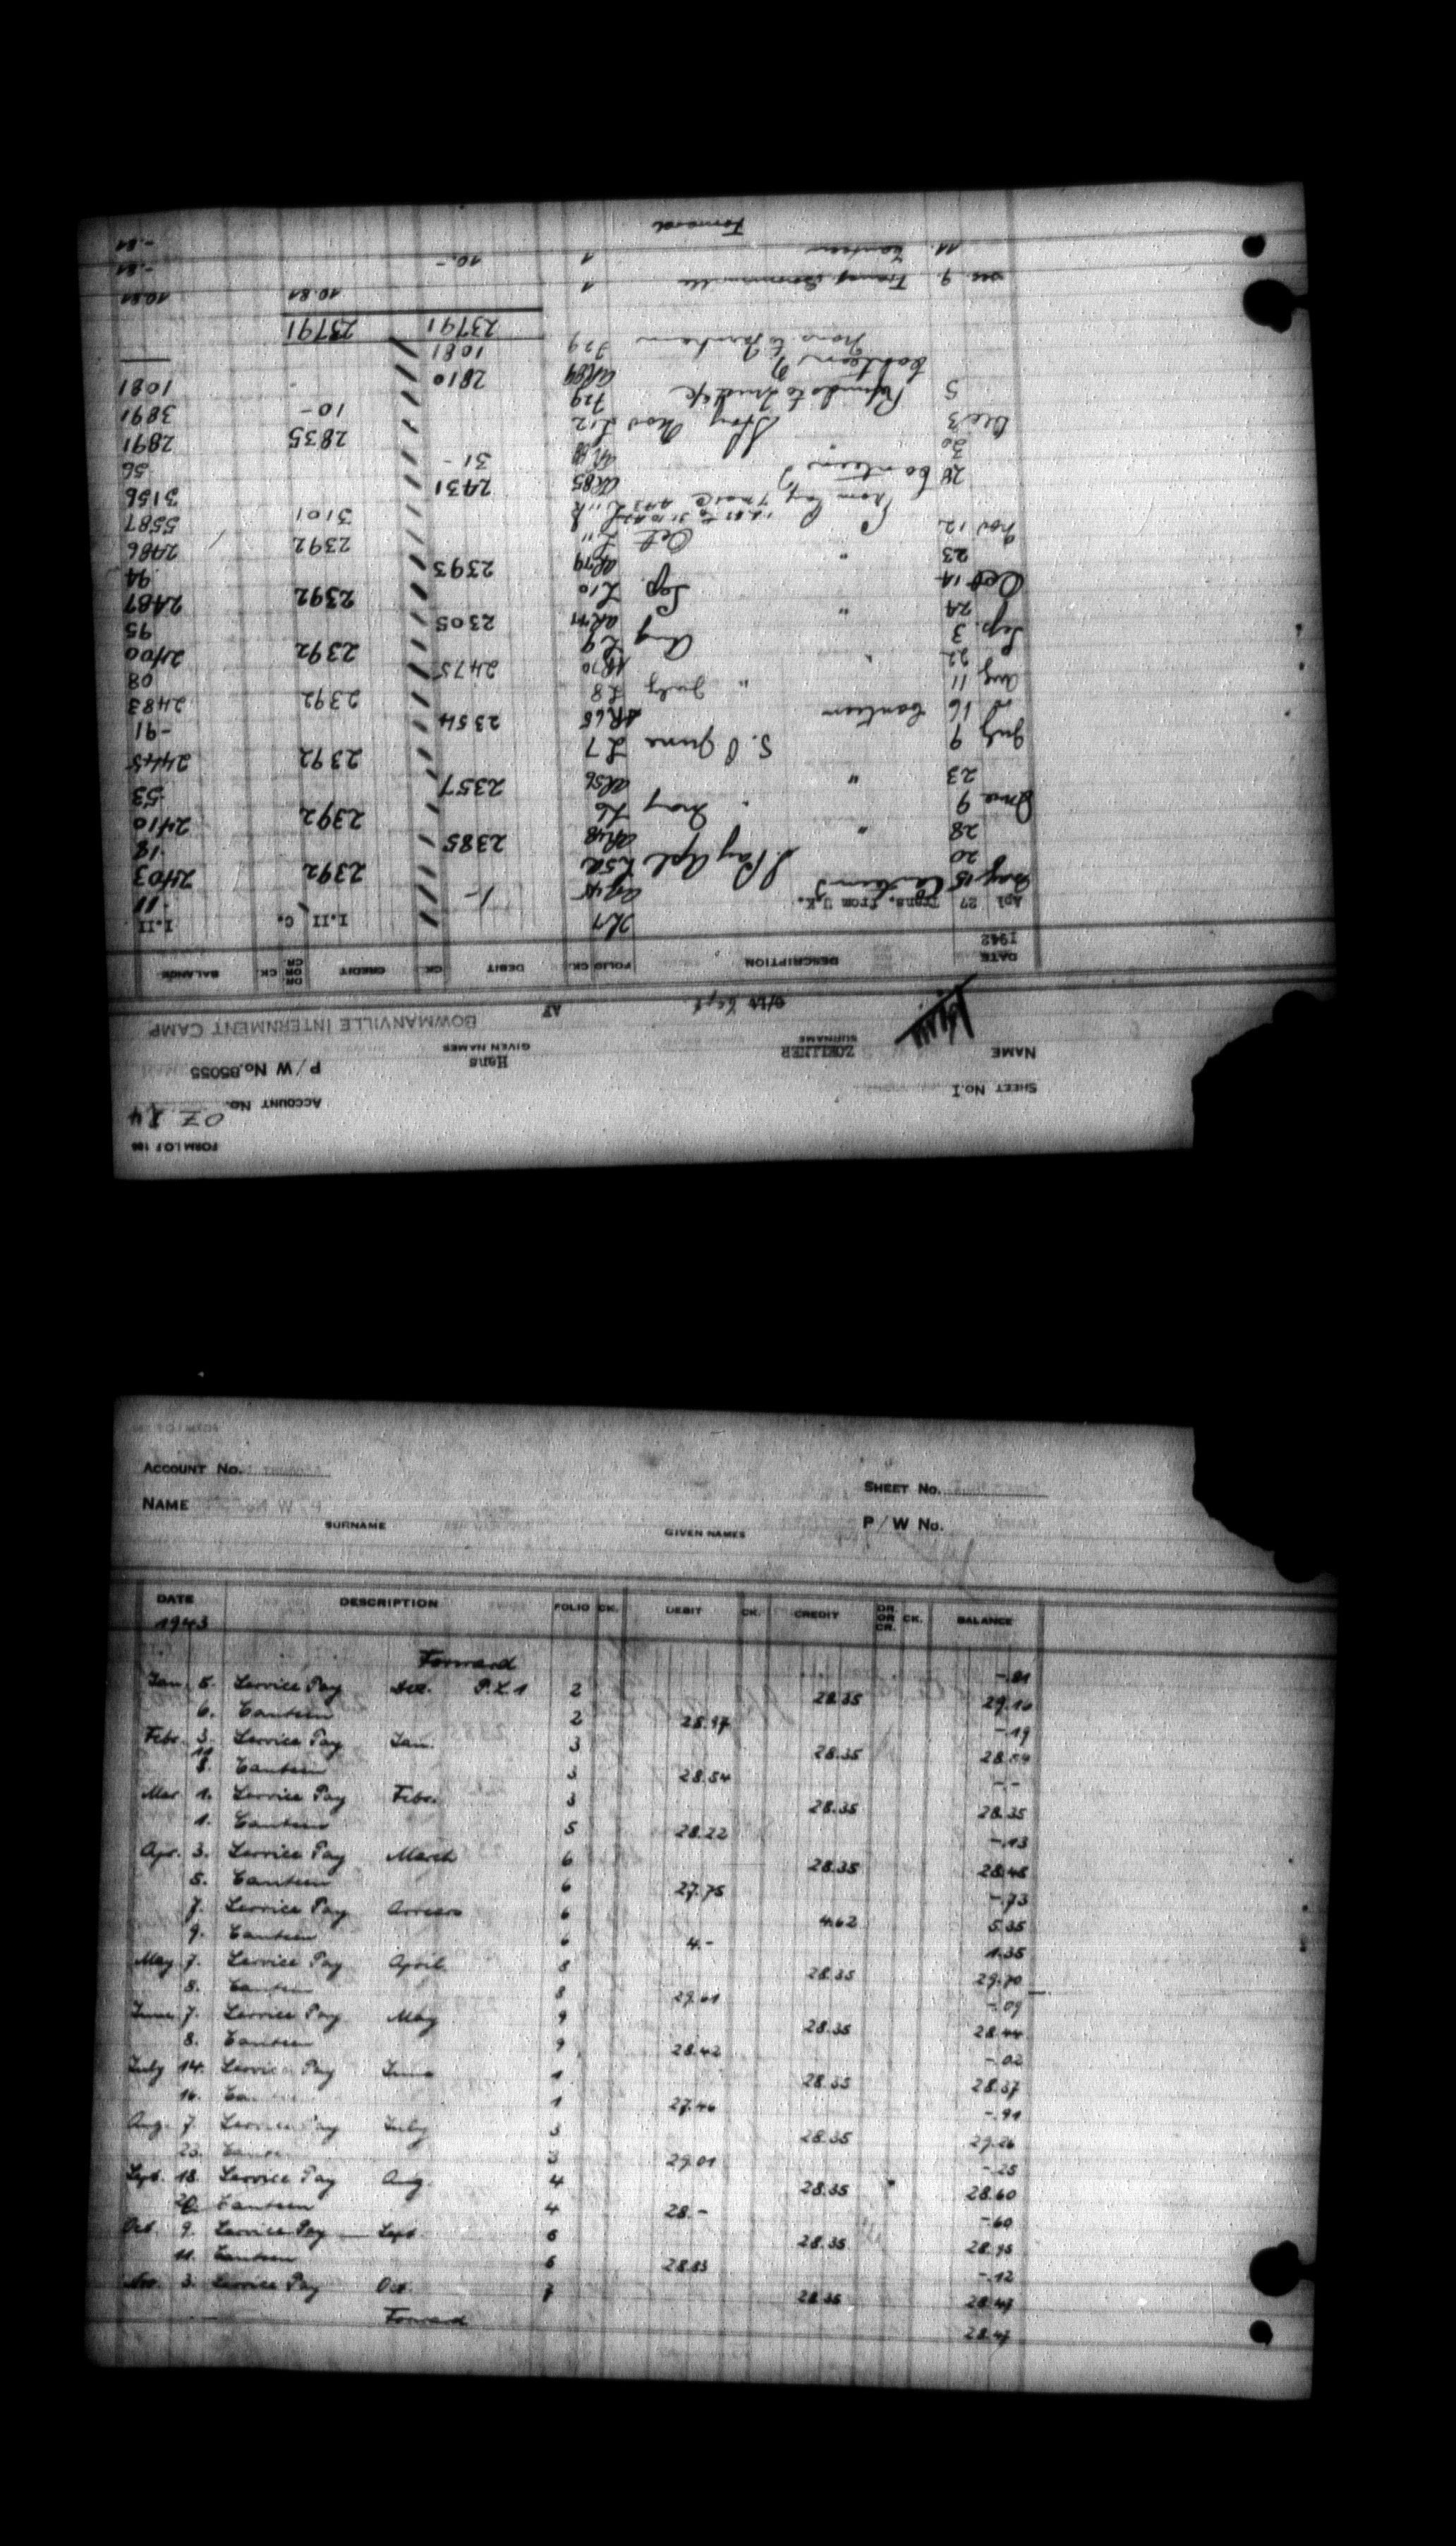 FORM I.O.F 106
ACCOUNT No. OZ 14
SHEET No. I
P/W No. 85055
NAME ZOELLNER Hans
SURNAME GIVEN NAMES
BOWMANVILLE INTERNMENT CAMP
O/Lt Capt. AF
DATE DESCRIPTION FOLIO CK. DEBIT CK. CREDIT DR OR CR CK. BALANCE
1942
Apl 27 Trans. from U.K. I.II C. I.II
May 15 Canteen 1- 11
20 S. Pay Apl L5a 2392 2403
28 " AR48 2385 18
June 9 " May L6 2392 2410
23 " AR56 2357 53
July 9 S.P June L7 2392 2445
16 Canteen AR65 2354 -91
Aug 11 " July L8 2392 2483
22 " AR70 2475 08
Sep. 3 Aug L9 2392 2400
24 " 2305 95
Oct 14 Sep. L10 2392 2487
23 " AR79 2393 94
Oct L11 2392 2486
Nov 12 3101 5587
AR85 2431 3156
28 Canteen 31- 56
30 Nov L12 2835 2891
Dec 3 Refund J29 10- 3891
5 Canteen AR89 2810 1081
Trans to J29 1081
23791 23791
Dec. 9. Transf Bowmanville 1 10.81 10.81
11. Canteen 1 10.- -.81
Forward -.81
ACCOUNT No.
SHEET No.
NAME
P/W No.
SURNAME GIVEN NAMES
DATE DESCRIPTION FOLIO CK. DEBIT CK. CREDIT DR OR CR. CK. BALANCE
1943
Forward -.81
Jan. 5. Service Pay Dec. P.L.1 2 28.35 29.16
6. Canteen 2 28.97 -.19
Febr. 3. Service Pay Jan. 3 28.35 28.54
Canteen 3 28.54 -.-
Mar 1. Service Pay Febr. 3 28.35 28.35
1. Canteen 5 28.22 -.13
Apr. 3. Service Pay March 6 28.35 28.48
5. Canteen 6 27.75 -.73
7. Service Pay Arrears 6 4.62 5.35
9. Canteen 6 4.- 1.35
May 7. Service Pay April 8 28.35 29.70
8. Canteen 8 29.61 -.09
June 7. Service Pay May 9 28.35 28.44
8. Canteen 9 28.42 -.02
July 14. Service Pay June 1 28.35 28.37
16. Canteen 1 27.46 -.91
Aug. 7. Service Pay July 3 28.35 29.26
23. Canteen 3 29.01 -.25
Sept. 18. Service Pay Aug. 4 28.35 28.60
20. Canteen 4 28.- -.60
Oct. 9. Service Pay Sept. 6 28.35 28.95
11. Canteen 6 28.83 -.12
Nov. 3. Service Pay Oct. 7 28.35 28.47
Forward 28.47